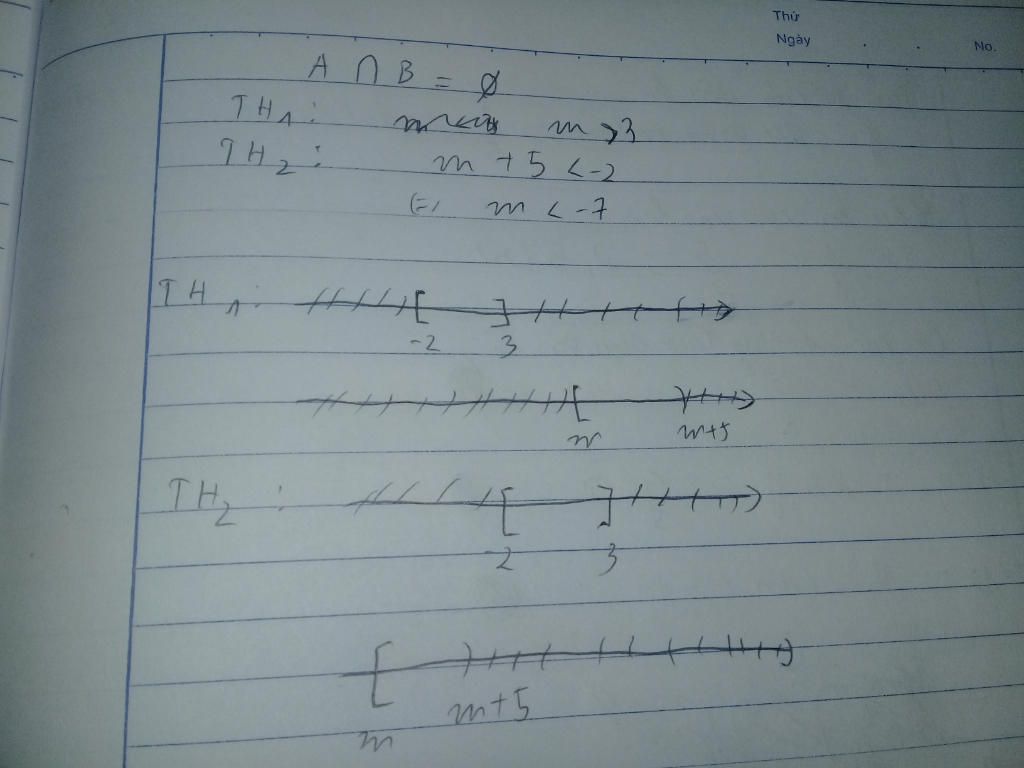 Thứ
Ngày . . No.
A ∩ B = ∅
TH₁ : m > 3
TH₂ : m + 5 < -2
(=) m < -7
TH₁ : [ ]
-2 3
[ )
m m+5
TH₂ : [ ]
-2 3
[ )
m+5
m